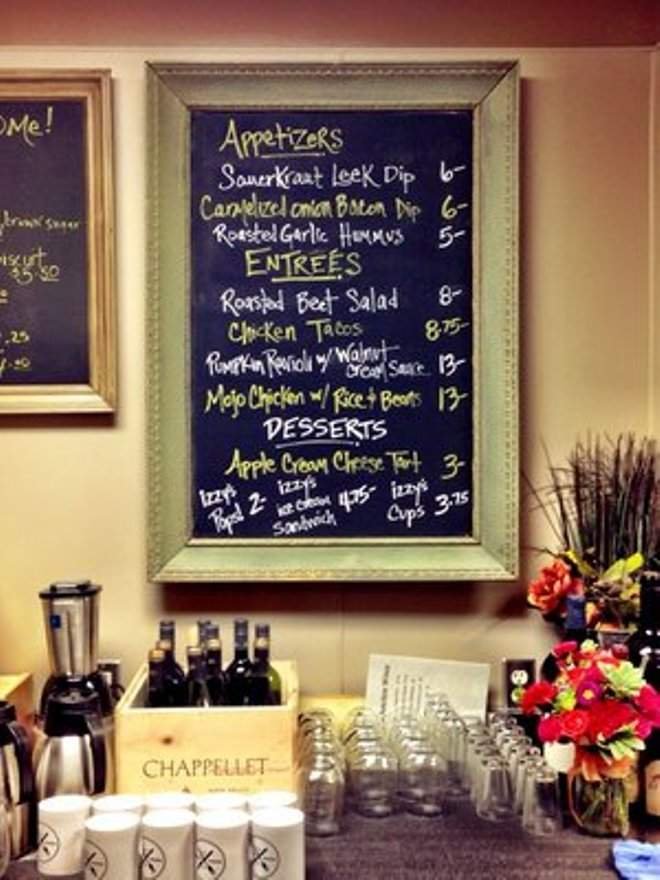 ome!
brown sugar
$5.50
.25
Appetizers
Sauerkraut Leek Dip 6-
Carmelized onion Bacon Dip 6-
Roasted Garlic Hummus 5-
ENTREÉS
Roasted Beet Salad 8-
Chicken Tacos 8.75-
Pumpkin Ravioli w/ Walnut cream Sauce 13-
Mojo Chicken w/ Rice & Beans 13-
DESSERTS
Apple Cream Cheese Tart 3-
Izzy's Pops! 2-
Izzy's ice cream Sandwich 4.75-
Izzy's Cups 3.75
CHAPPELLET